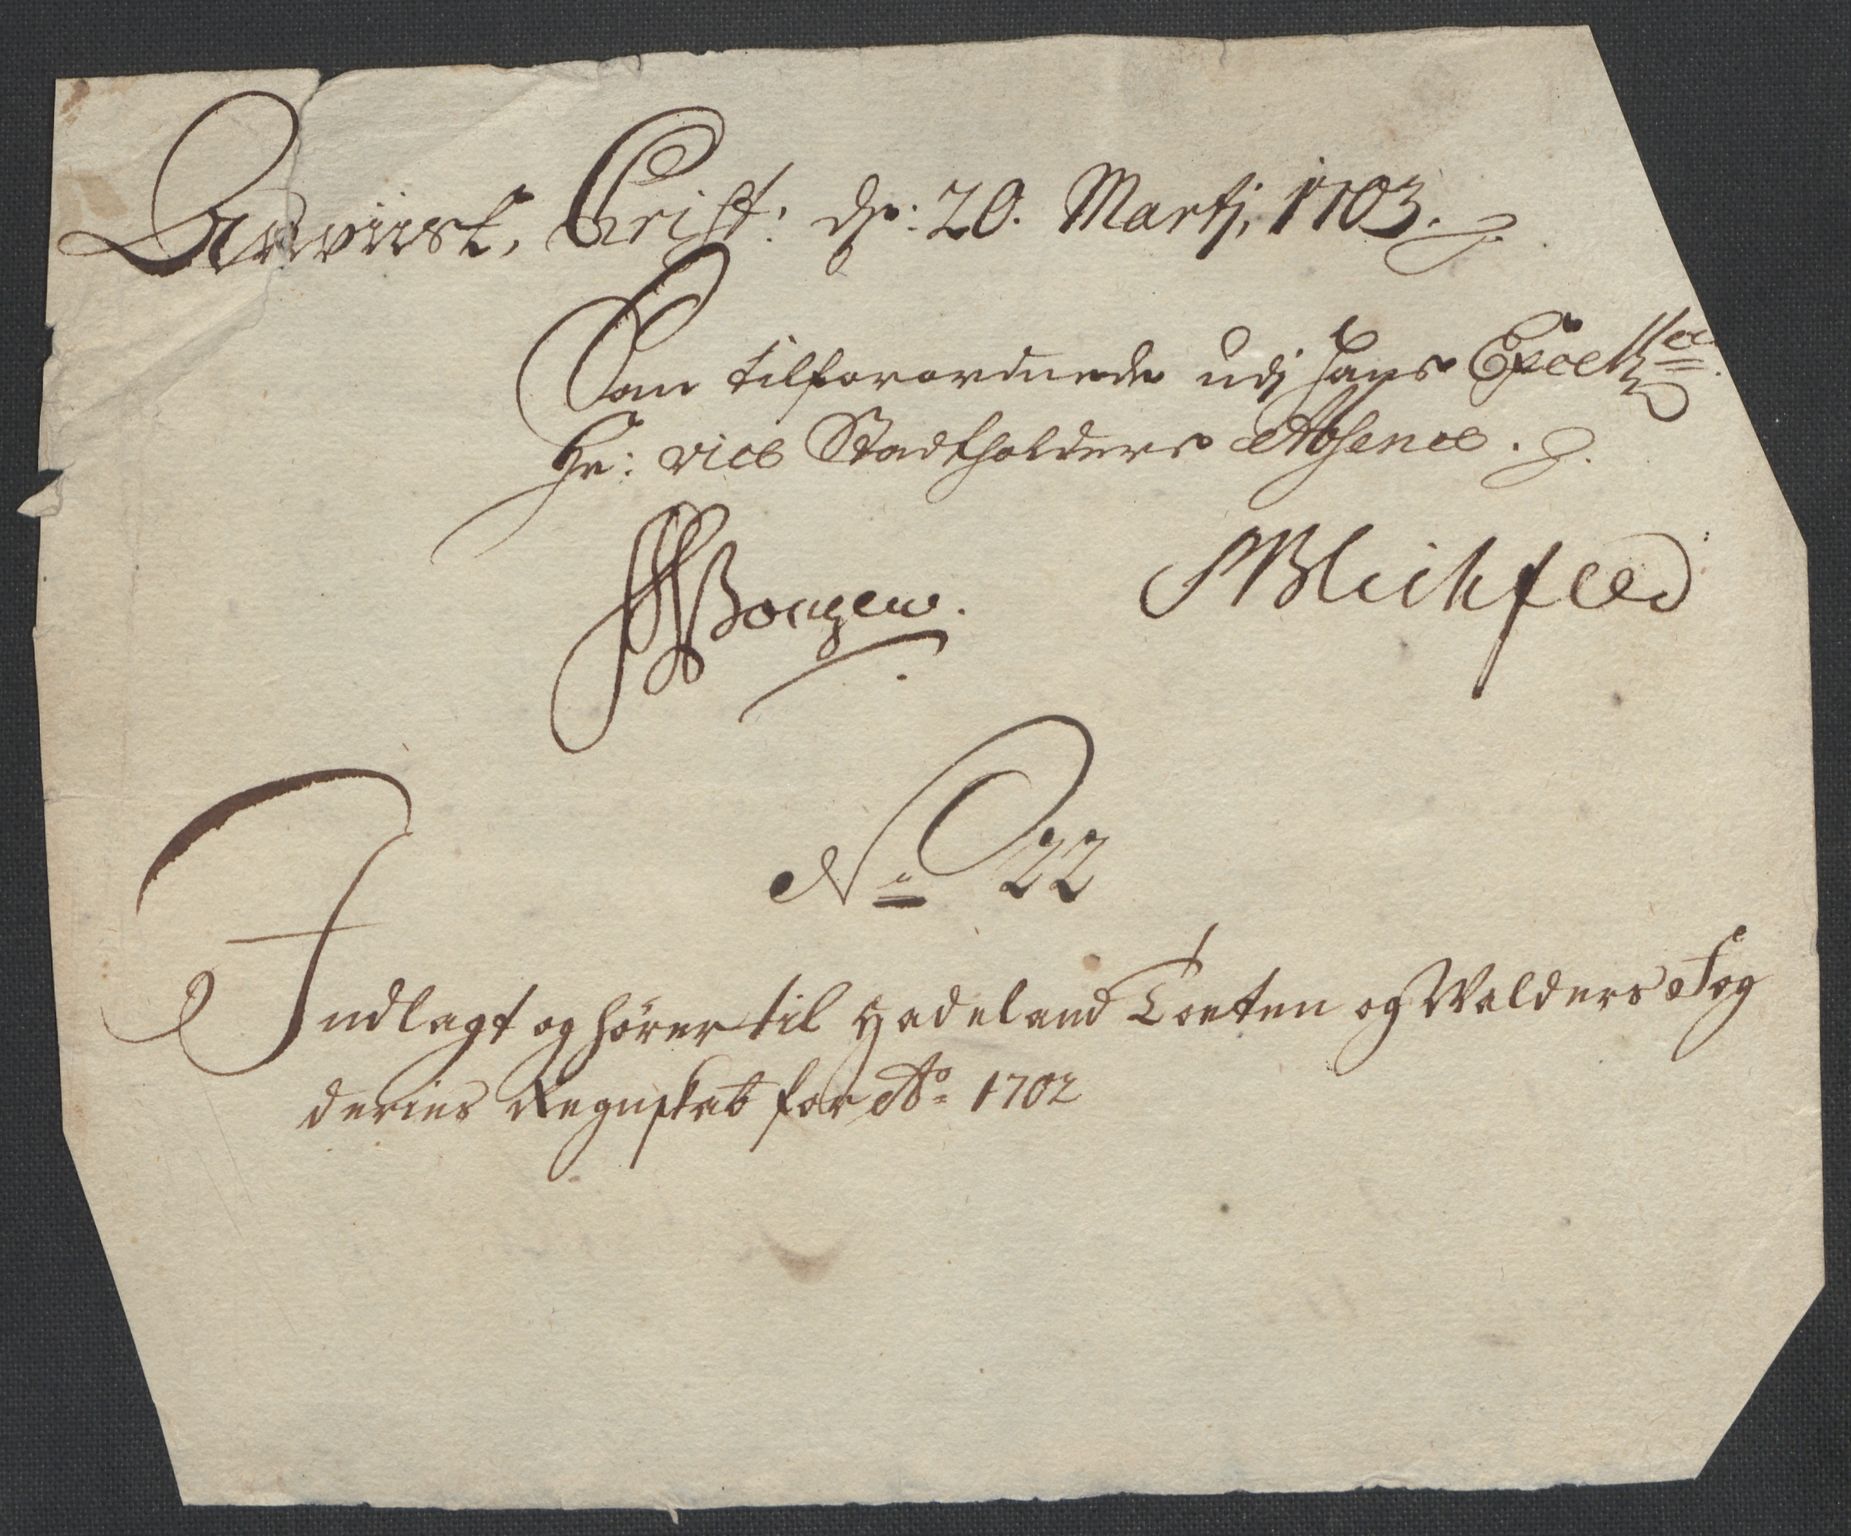 Anviist, Christ: dn: 20. Martj, 1703.
Som tilforordnede udj Hans Excellce
Hr: vice Stadtholders Absence.
Blichfeld
No 22
Indlagt og hører til Hadeland Toeten og Walders Fog
deries Regnskab for Ao 1702